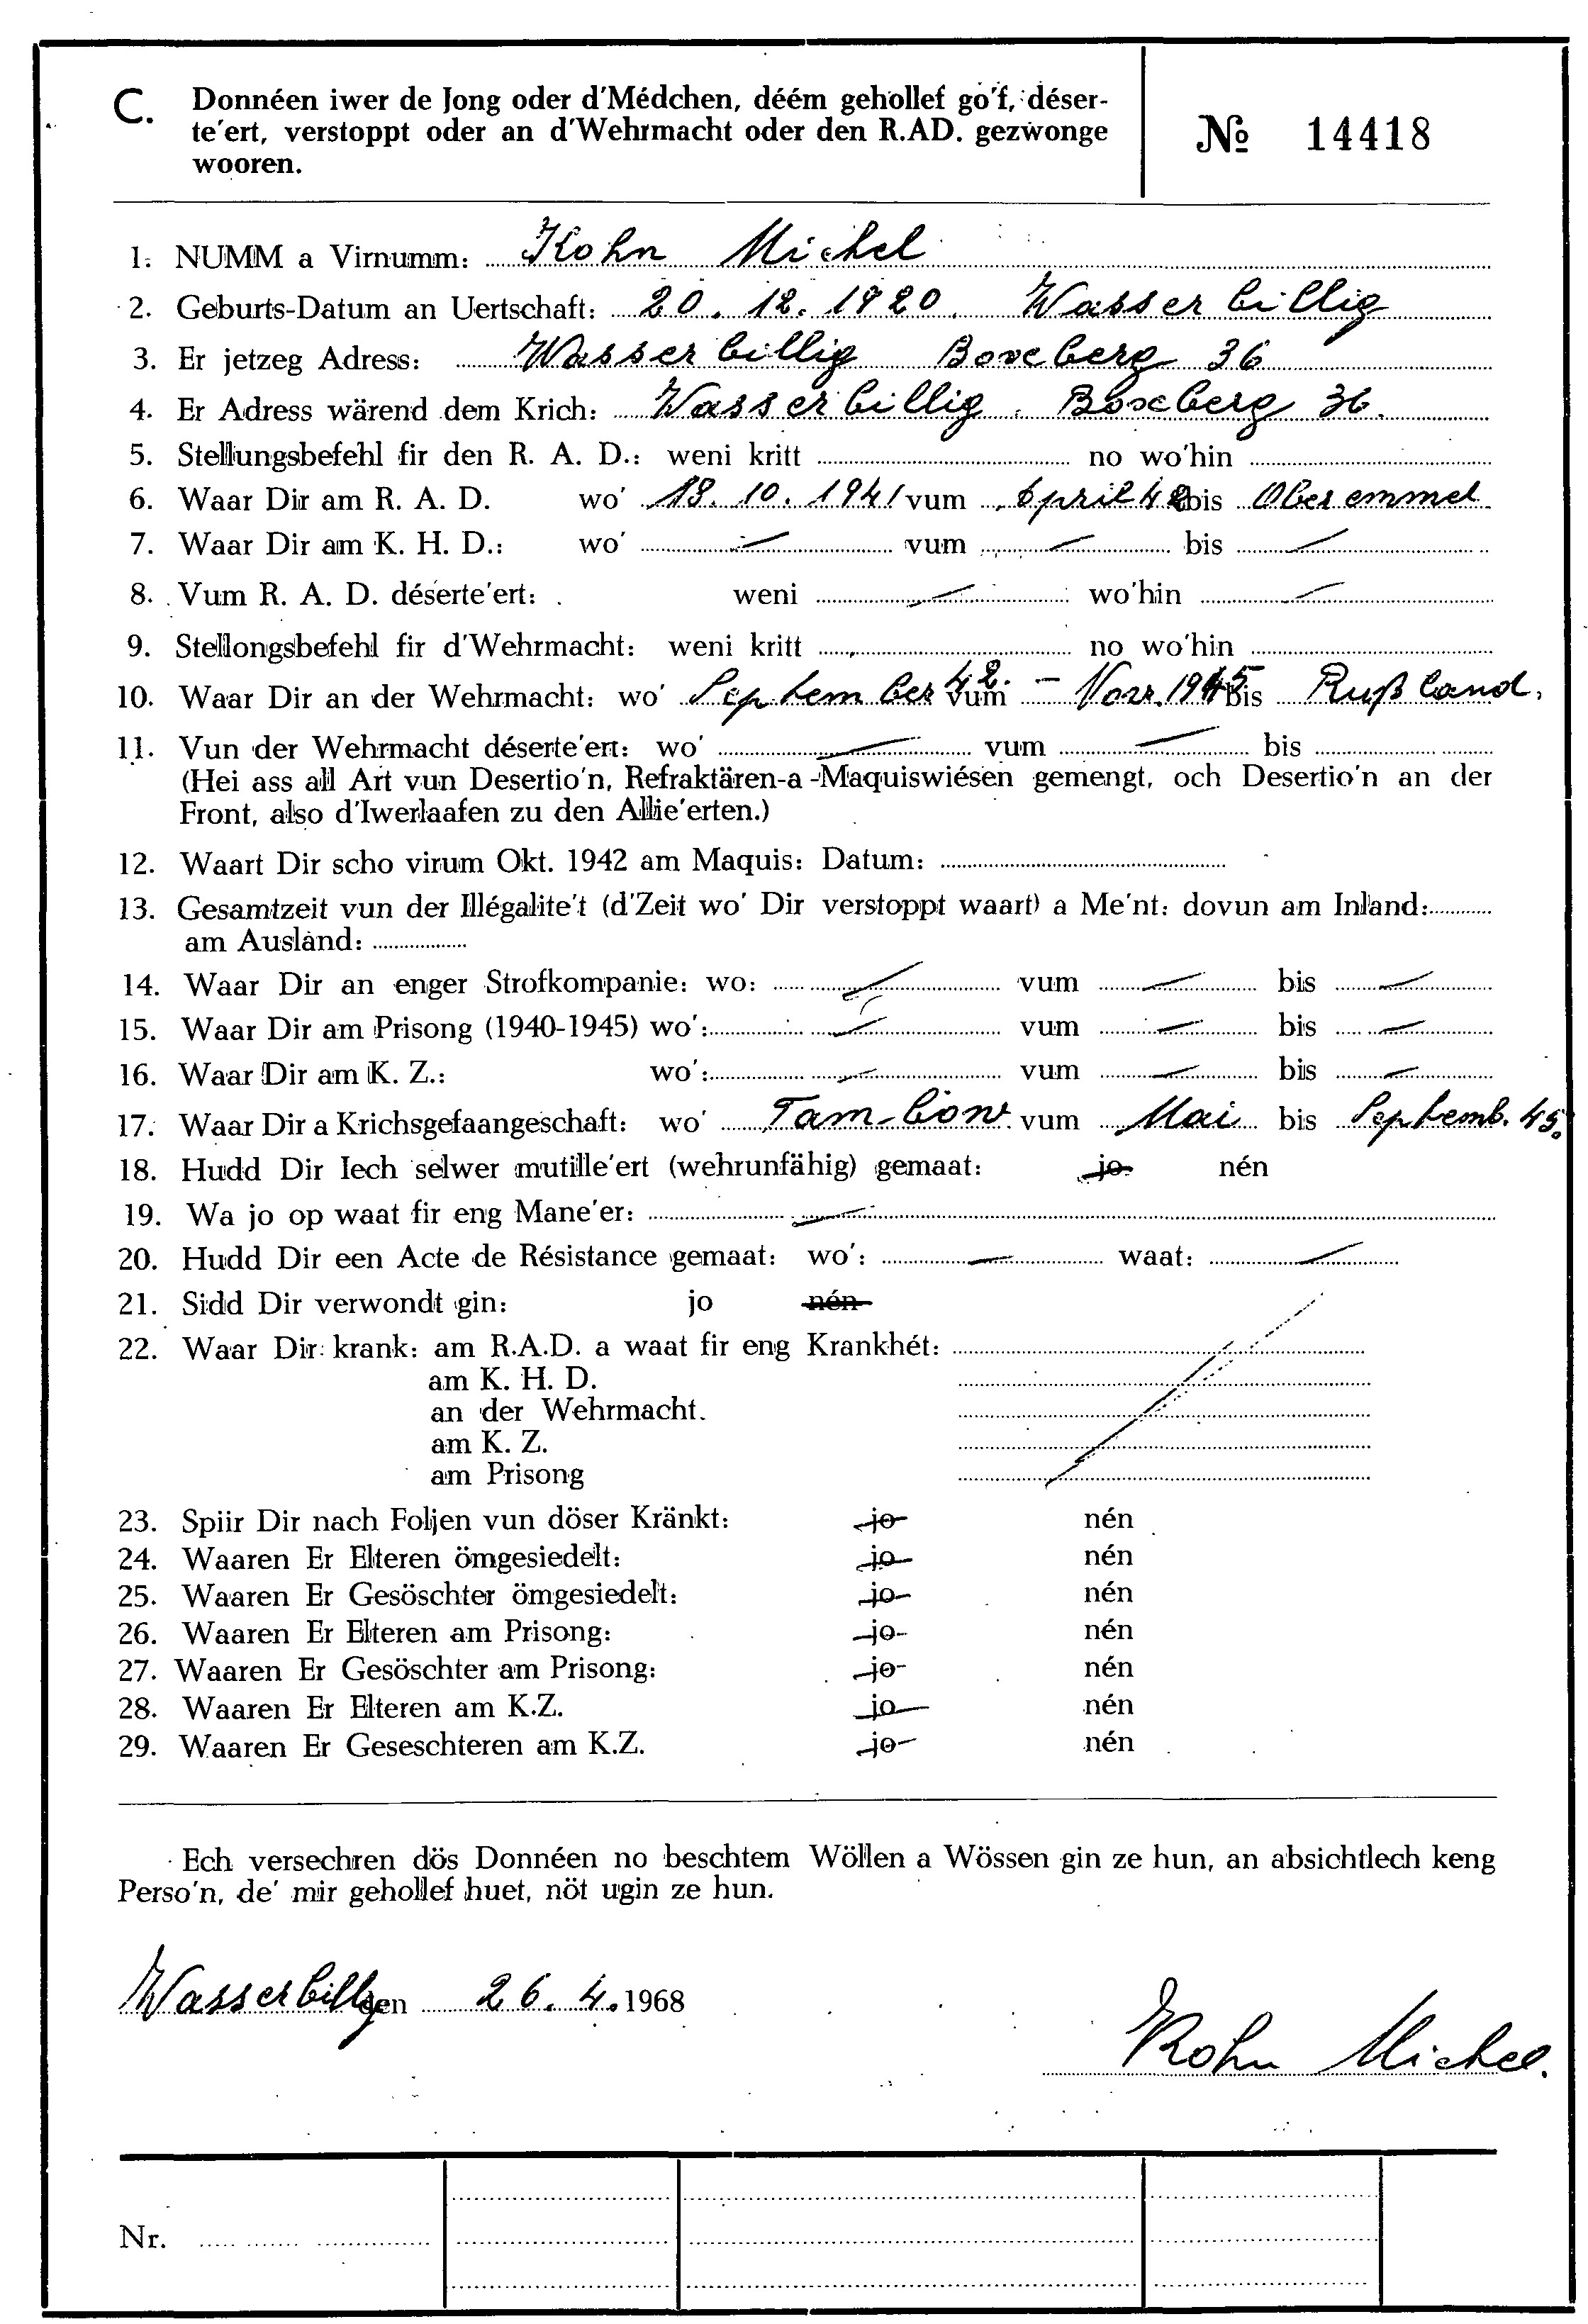 C. Donnéen iwer de Jong oder d'Médchen, déém gehollef go'f, déser-
te'ert, verstoppt oder an d'Wehrmacht oder den R.AD. gezwonge
wooren.
№ 14418
1. NUMM a Virnumm: Kohn Michel
2. Geburts-Datum an Uertschaft: 20. 12. 1920. Wasserbillig
3. Er jetzeg Adress: Wasserbillig Boxberg 36
4. Er Adress wärend dem Krich: Wasserbillig. Boxberg 36.
5. Stellungsbefehl fir den R. A. D.: weni kritt no wo'hin
6. Waar Dir am R. A. D. wo' 13. 10. 1941 vum April 42 bis Oberemmel
7. Waar Dir am K. H. D.: wo' — vum — bis —
8. Vum R. A. D. déserte'ert: weni — wo'hin —
9. Stellongsbefehl fir d'Wehrmacht: weni kritt no wo'hin
10. Waar Dir an der Wehrmacht: wo' September 42. vum – Nov. 1945 bis Rußland.
11. Vun der Wehrmacht déserte'ert: wo' — vum — bis
(Hei ass all Art vun Desertio'n, Refraktären-a-Maquiswiésen gemengt, och Desertio'n an der
Front, also d'Iwerlaafen zu den Allie'erten.)
12. Waart Dir scho virum Okt. 1942 am Maquis: Datum:
13. Gesamtzeit vun der Illégalite't (d'Zeit wo' Dir verstoppt waart) a Me'nt: dovun am Inland:
am Ausland:
14. Waar Dir an enger Strofkompanie: wo: — vum — bis —
15. Waar Dir am Prisong (1940-1945) wo': — vum — bis —
16. Waar Dir am K. Z.: wo': — vum — bis —
17. Waar Dir a Krichsgefaangeschaft: wo' Tam-bow vum Mai bis Septemb. 45.
18. Hudd Dir Iech selwer mutille'ert (wehrunfähig) gemaat: jo nén
19. Wa jo op waat fir eng Mane'er: —
20. Hudd Dir een Acte de Résistance gemaat: wo': — waat: —
21. Sidd Dir verwondt gin: jo nén
22. Waar Dir krank: am R.A.D. a waat fir eng Krankhét:
am K. H. D.
an der Wehrmacht.
am K. Z.
am Prisong
23. Spiir Dir nach Foljen vun döser Kränkt: jo nén
24. Waaren Er Elteren ömgesiedelt: jo nén
25. Waaren Er Gesöschter ömgesiedelt: jo nén
26. Waaren Er Elteren am Prisong: jo nén
27. Waaren Er Gesöschter am Prisong: jo nén
28. Waaren Er Elteren am K.Z. jo nén
29. Waaren Er Geseschteren am K.Z. jo nén
Ech versechren dös Donnéen no beschtem Wöllen a Wössen gin ze hun, an absichtlech keng
Perso'n, de' mir gehollef huet, nöt ugin ze hun.
Wasserbillig den 26. 4. 1968
Kohn Michel.
Nr.